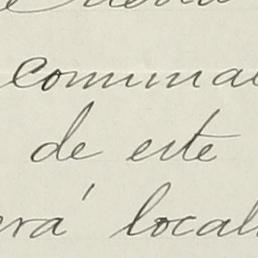 comuna
de este
erá local